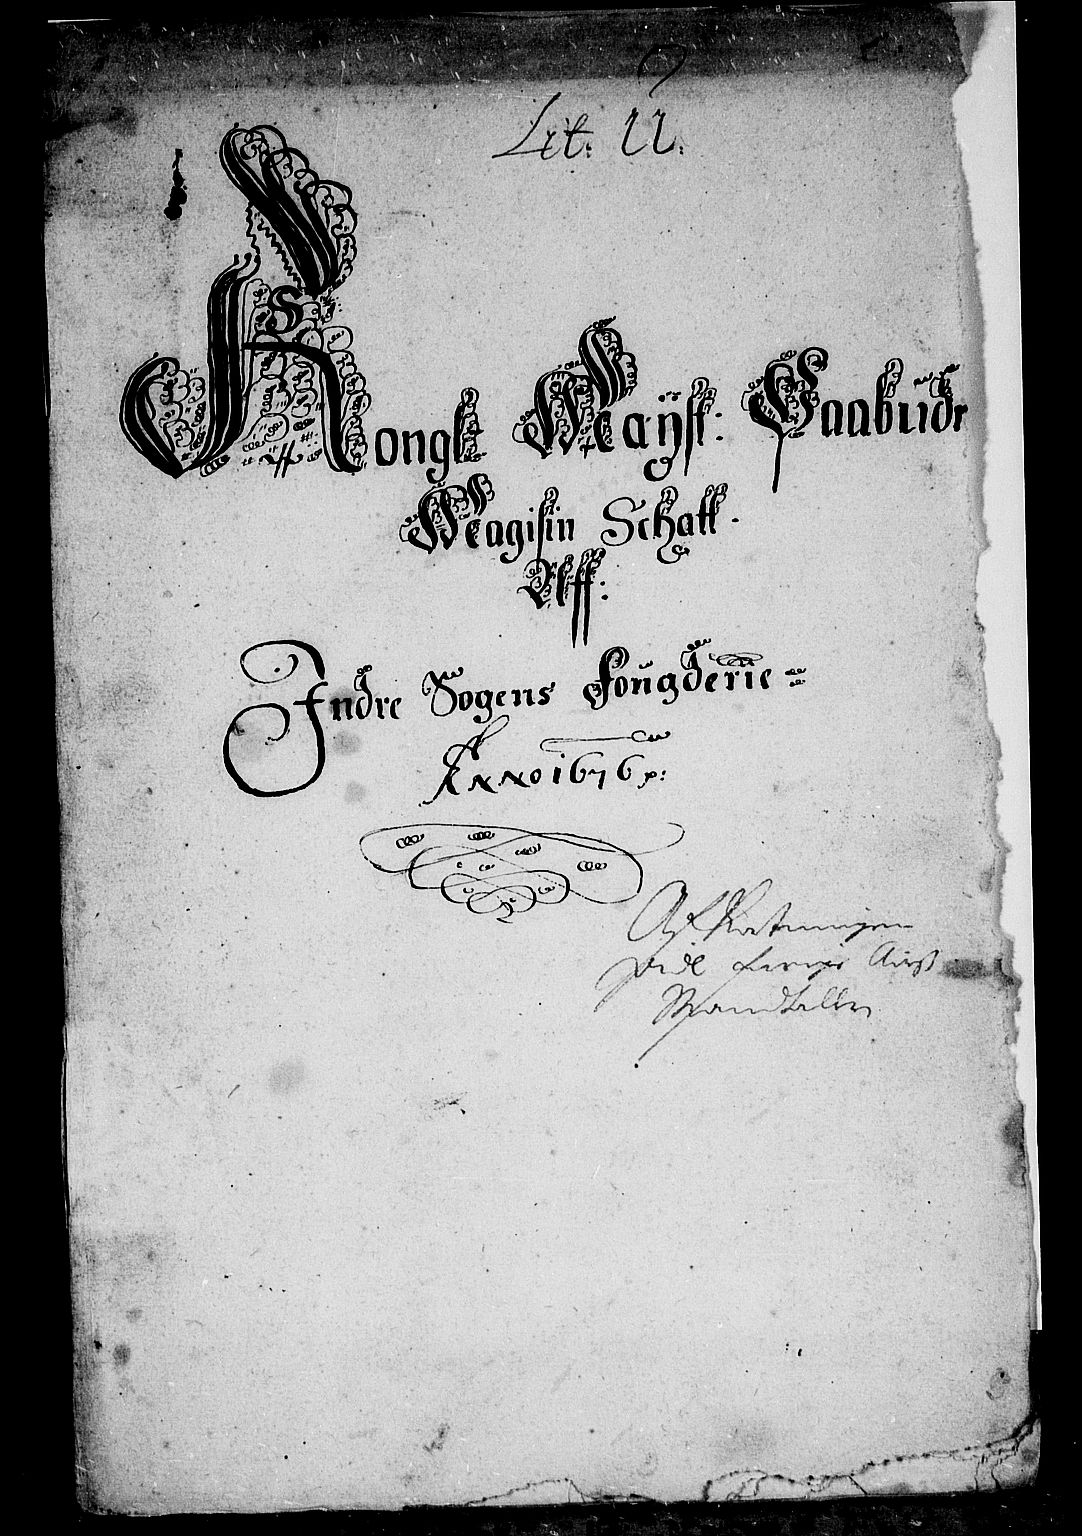 Lit: U.
Kongl Mayst: Paabudr
Magisin Schatt.
Aff:
Indre Sogens Fougderie
Anno 1676
Mandtallen